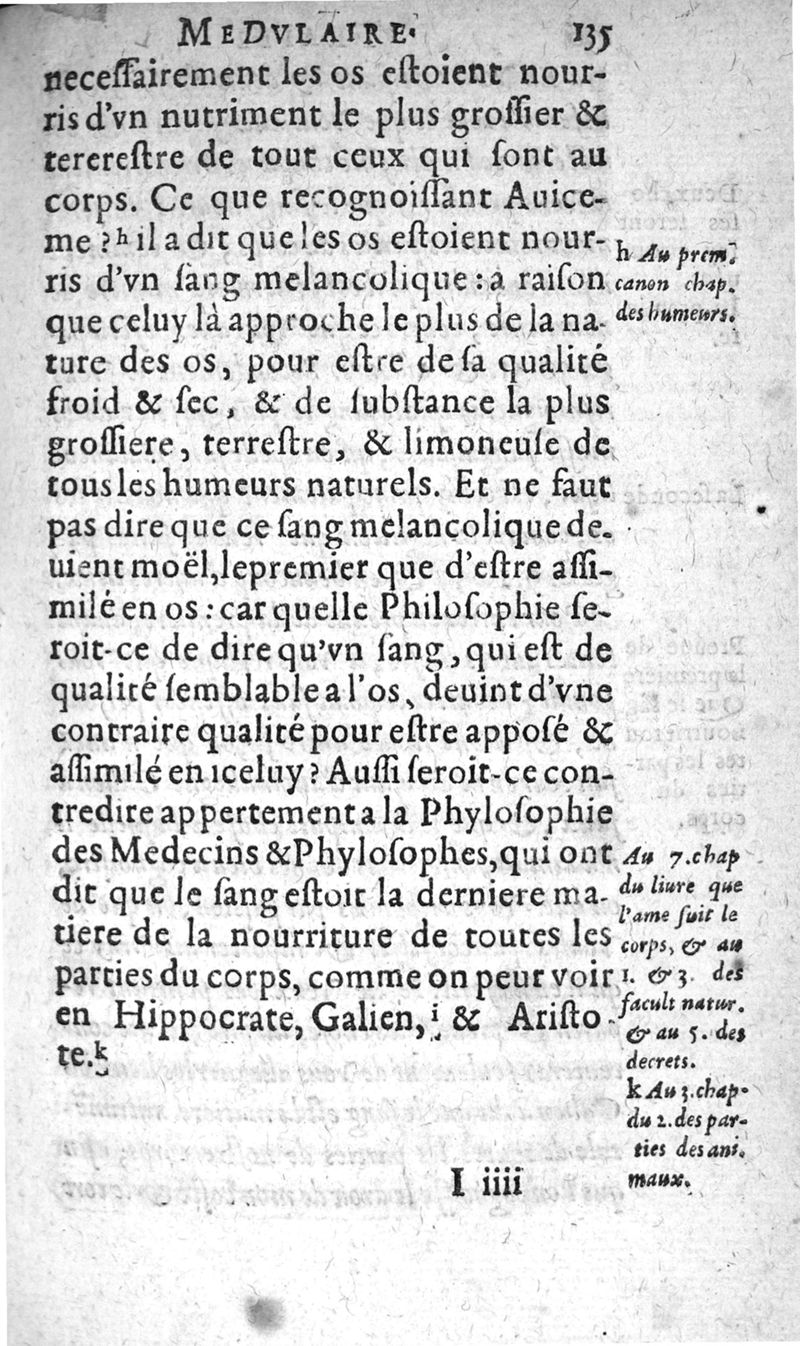 MEDVLAIRE. 135
neceſſairement les os eſtoient nour-
ris d'vn nutriment le plus groſſier &
tererreſtre de tout ceux qui ſont au
corps. Ce que recognoiſſant Auice-
me ?ʰ il a dit que les os eſtoient nour-
ris d'vn ſang melancolique: a raiſon
que celuy là approche le plus de la na-
ture des os, pour eſtre de ſa qualité
froid & ſec, & de ſubſtance la plus
groſſiere, terreſtre, & limoneuſe de
tous les humeurs naturels. Et ne faut
pas dire que ce ſang melancolique de-
uient moël, lepremier que d'eſtre aſſi-
milé en os: car quelle Philoſophie ſe-
roit-ce de dire qu'vn ſang, qui eſt de
qualité ſemblable a l'os, deuint d'vne
contraire qualité pour eſtre appoſé &
aſſimilé en iceluy? Auſſi ſeroit-ce con-
tredire appertement a la Phyloſophie
des Medecins & Phyloſophes, qui ont
dit que le ſang eſtoit la derniere ma-
tiere de la nourriture de toutes les
parties du corps, comme on peur voir
en Hippocrate, Galien,ⁱ & Ariſto-
te.ᵏ
h Au prem.
canon chap.
des humeurs.
Au 7. chap
du liure que
l'ame ſuit le
corps, & au
1. & 3. des
facult natur.
& au 5. des
decrets.
k Au 3. chap.
du 2. des par-
ties des ani.
maux.
I iiii